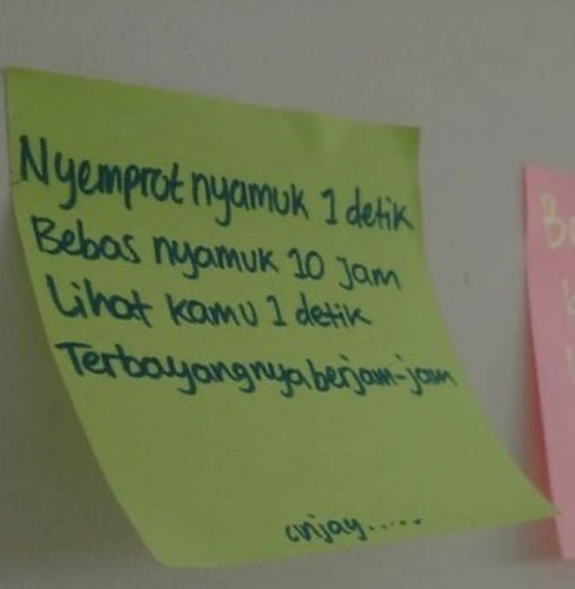 Nyemprot nyamuk 1 detik
Bebas nyamuk 10 Jam
Lihat kamu 1 detik
Terbayangnya berjam-jam
anjay.....